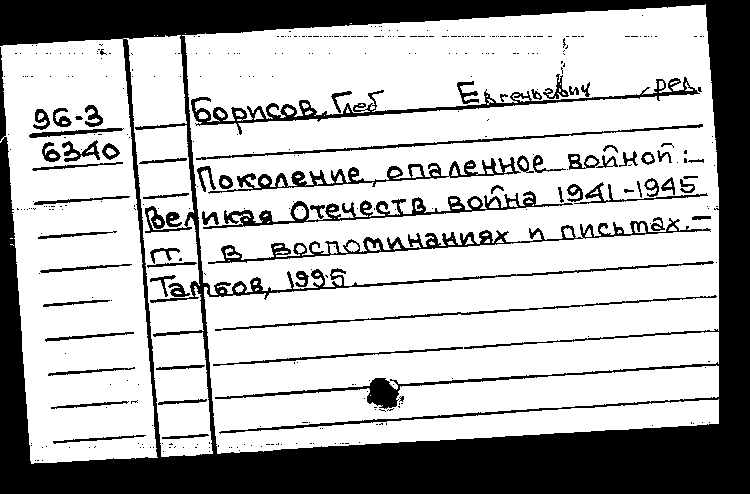 96-3
6340
Борисов, Глеб Евгеньевич, ред.
Поколение, опаленное войной:
Великая Отечеств. война 1941-1945
гг. в воспоминаниях и письмах.-
Тамбов, 1995.